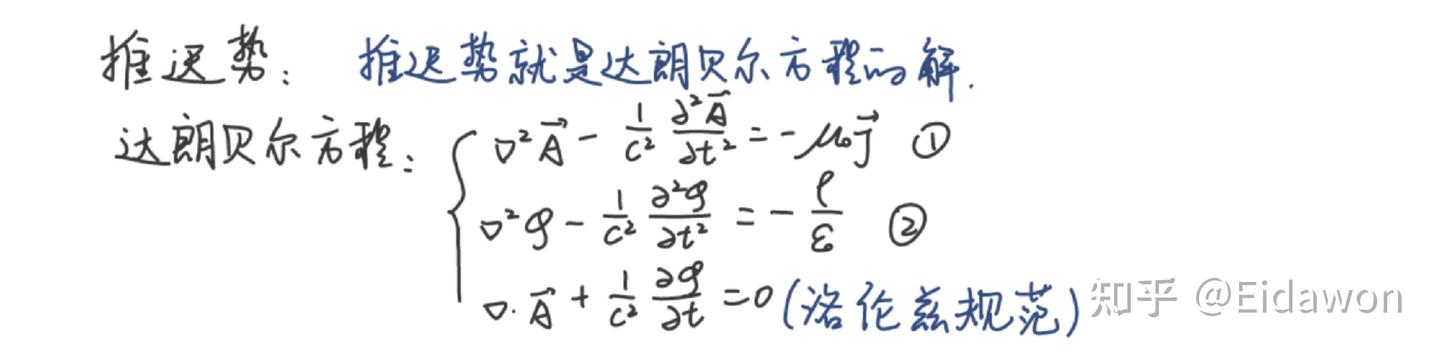 推迟势： 推迟势就是达朗贝尔方程的解.
达朗贝尔方程：
∇²A⃗ - 1/c² ∂²A⃗/∂t² = -μ₀j⃗ ①
∇²φ - 1/c² ∂²φ/∂t² = - ρ/ε₀ ②
∇·A⃗ + 1/c² ∂φ/∂t = 0 (洛伦兹规范)
知乎 @Eidawon